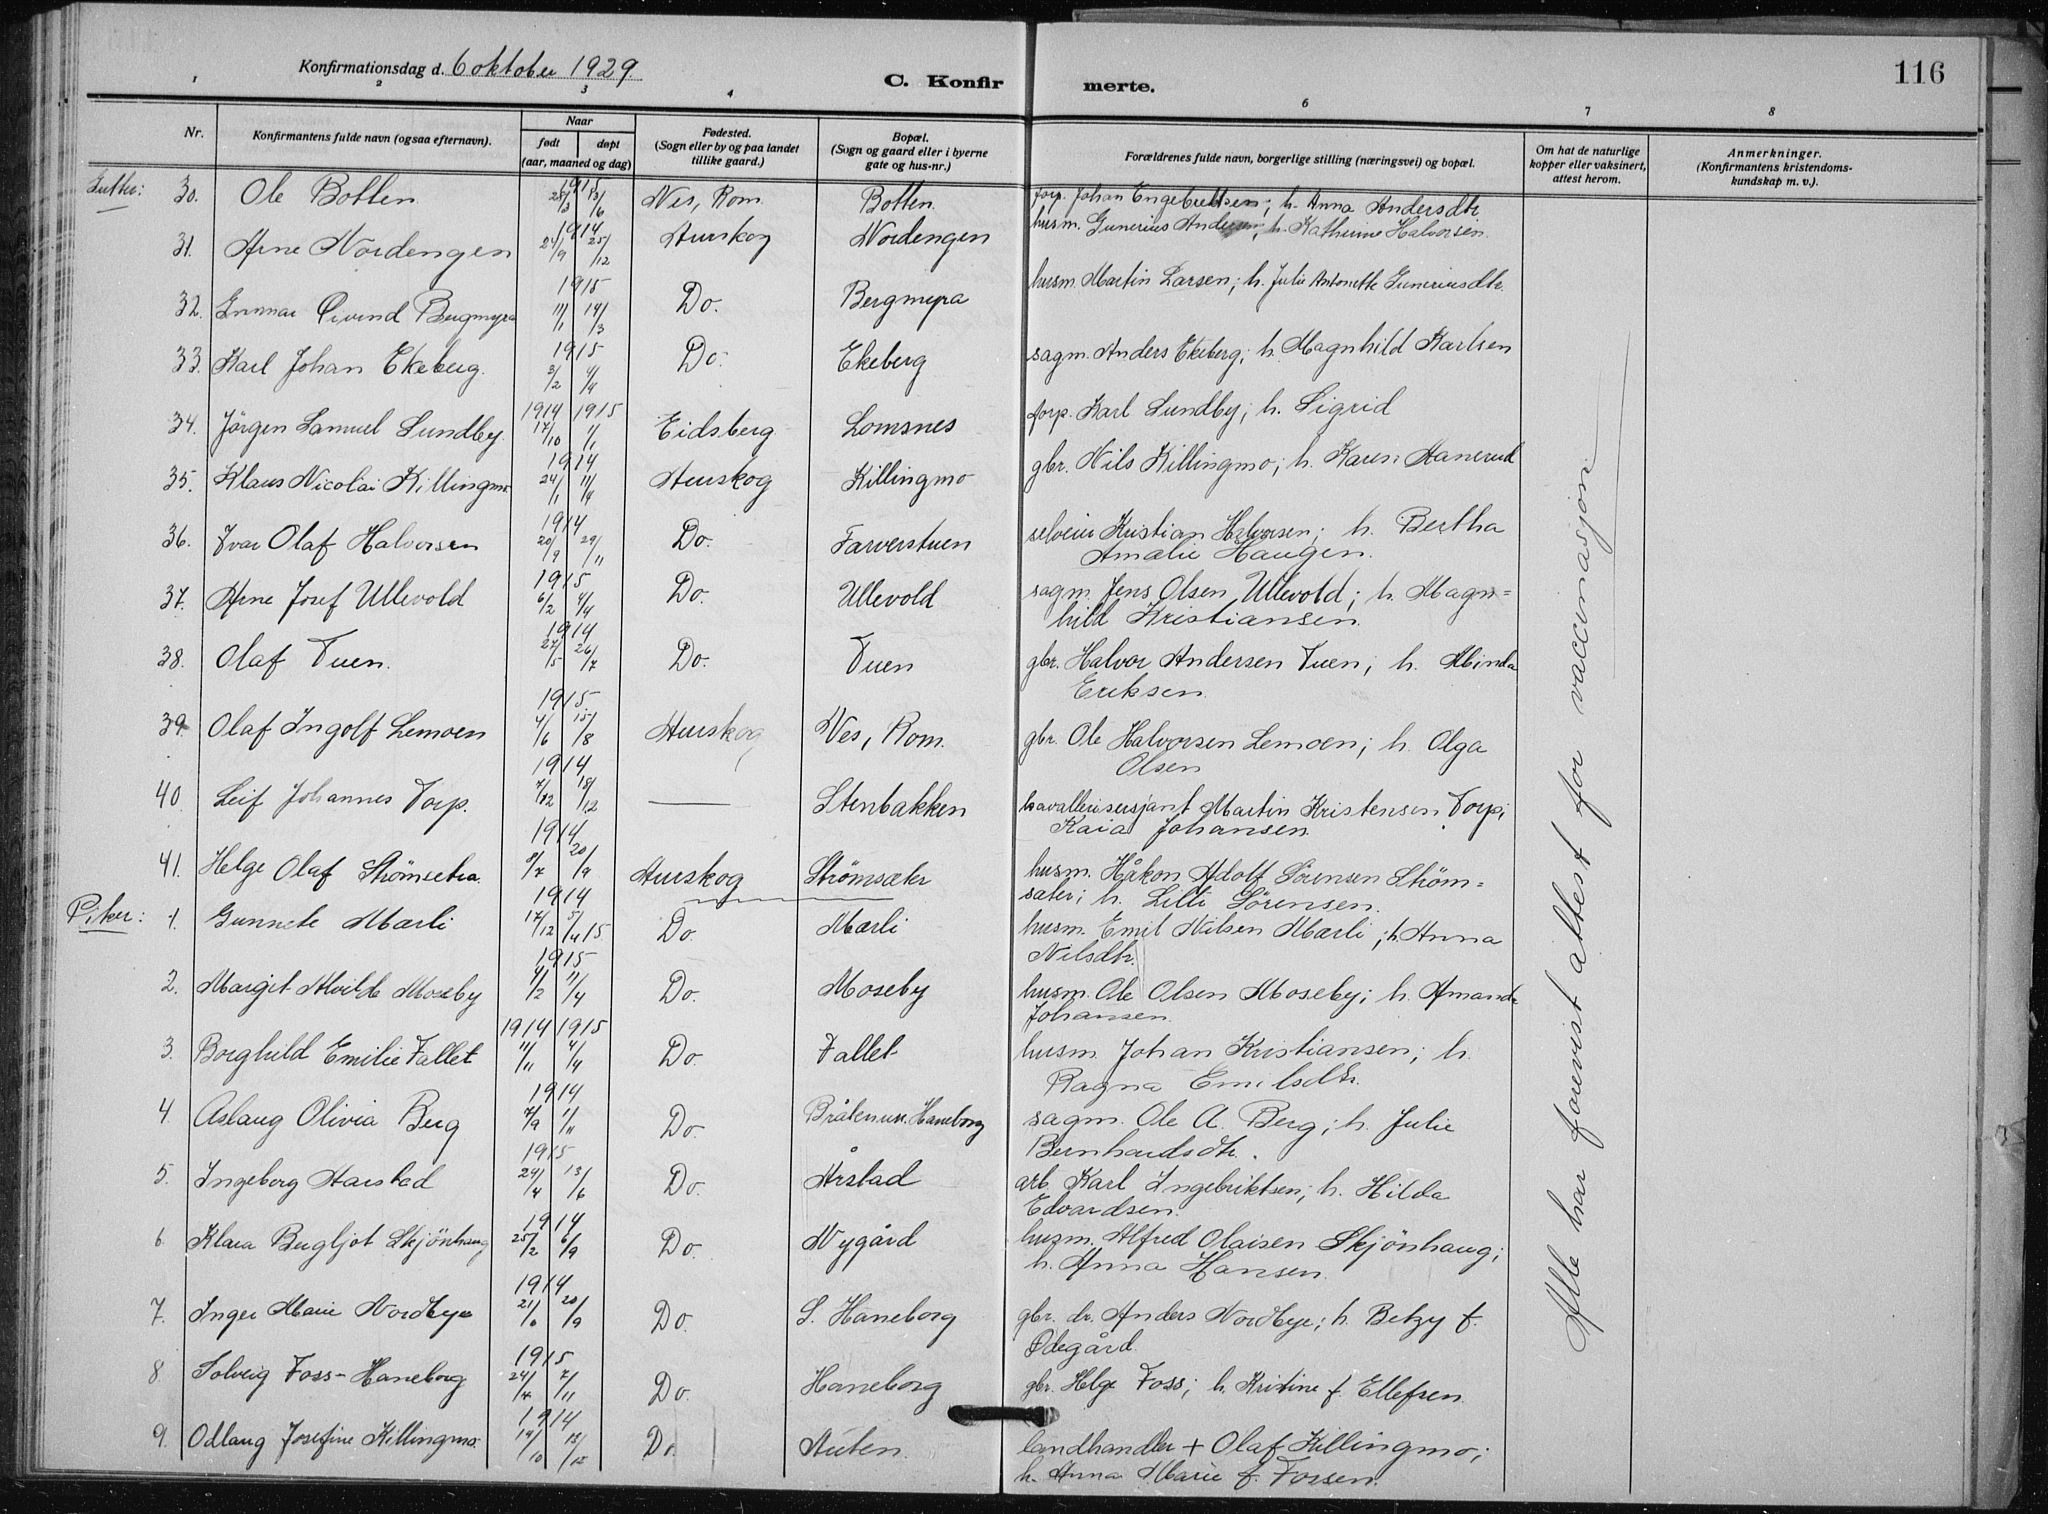 116
Konfirmationsdag d. 6 oktober 1929
C. Konfir merte.
1 2 3 4 6 7 8
Nr. Konfirmantens fulde navn (ogsaa efternavn). Naar født døpt (aar, maaned og dag) Fødested. (Sogn eller by og paa landet tillike gaard.) Bopæl. (Sogn og gaard eller i byerne gate og hus-nr.) Forældrenes fulde navn, borgerlige stilling (næringsvei) og bopæl. Om hat de naturlige kopper eller vaksinert, attest herom. Anmerkninger. (Konfirmantens kristendoms-kundskap m. v.)
Gutter: 30. Ole Botten 1915 25/3 13/6 Nes, Rom. Botten. forp. Johan Engebretsen; h. Anna Andersdtr.
31. Arne Nordengen 1914 24/9 25/12 Aurskog Nordengen husm. Gunerius Andersen; h. Kathrine Halvorsen.
32. Gunnar Öivind Bergmyra 1915 11/1 14/3 Do. Bergmyra husm. Martin Larsen; h. Julie Antonette Guneriusdtr.
33. Karl Johan Ekeberg. 1915 3/2 4/4 Do. Ekeberg sagm. Anders Ekeberg; h. Magnhild Karlsen
34. Jörgen Samuel Sundby. 1914 17/10 1915 1/1 Eidsberg Lomsnes forp. Karl Sundby; h. Sigrid
35. Klaus Nicolai Killingmo. 1914 24/1 11/4 Aurskog Killingmo gbr. Nils Killingmo; h. Karen Aanerud
36. Ivar Olaf Halvorsen 1914 20/9 29/11 Do. Farverstuen selveier Kristian Halvorsen; h. Bertha
Amalie Haugen.
37. Arne Josef Ullevold 1915 6/2 4/4 Do. Ullevold sagm. Jens Olsen Ullevold; h. Magn=
hild Kristiansen.
38. Olaf Tuen. 1914 27/5 26/7 Do. Tuen gbr. Halvor Andersen Tuen; h. Minda
Eriksen.
39. Olaf Ingolf Lemoen 1915 4/6 15/8 Aurskog Nes, Rom. gbr. Ole Halvorsen Lemoen; h. Olga
Olsen
40. Leif Johannes Torp. 1914 — Stenbakken kavallerisersjant Martin Kristensen Torp;
Kaia Johansen.
41. Helge Olaf Strömsetra. 1914 8/7 20/9 Aurskog Strömsætr husm. Håkon Adolf Sörensen Ström=
sæter; h. Lilli Sörensen.
Piker: 1. Gunnete Mærli 1914 17/12 5/4 15 Do. Mærli husm. Emil Nilsen Mærli; h. Anna
Nilsdtr.
2. Margit Alvilde Moseby 1915 11/4 Do. Moseby husm. Ole Olsen Moseby; h. Amanda
Johansen.
3. Borghild Emilie Fallet 1914 11/11 1915 4/4 Do. Fallet husm. Johan Kristiansen; h.
Ragna Emilsdtr.
4. Aslaug Olivia Berg 1914 7/9 1/11 Do. Bråten un. Haneborg sagm. Ole A. Berg; h. Julie
Bernhardsdtr.
5. Ingeborg Aarstad 1915 24/4 13/6 Do. Årstad arb. Karl Ingebriktsen; h. Hilda
Edvardsen.
6. Klara Bergljot Skjönhaug 1914 25/2 6/9 Do. Nygård husm. Alfred Olaisen Skjönhaug;
h. Anna Hansen.
7. Inger Marie Nordbye 1914 21/6 20/9 Do. S. Haneborg gbr. dr. Anders Nordbye; h. Betzy f.
Ödegård.
8. Solveig Foss-Haneborg 1915 24/4 7/11 Do. Haneborg gbr. Helge Foss; h. Kristine f. Ellefsen.
9. Odlaug Josefine Killingmo. 1914 14/10 13/12 Do. Auten. landhandler + Olaf Killingmo;
h. Anna Marie f. Fossen.
Alle har forevist attest for vaccinasjon.